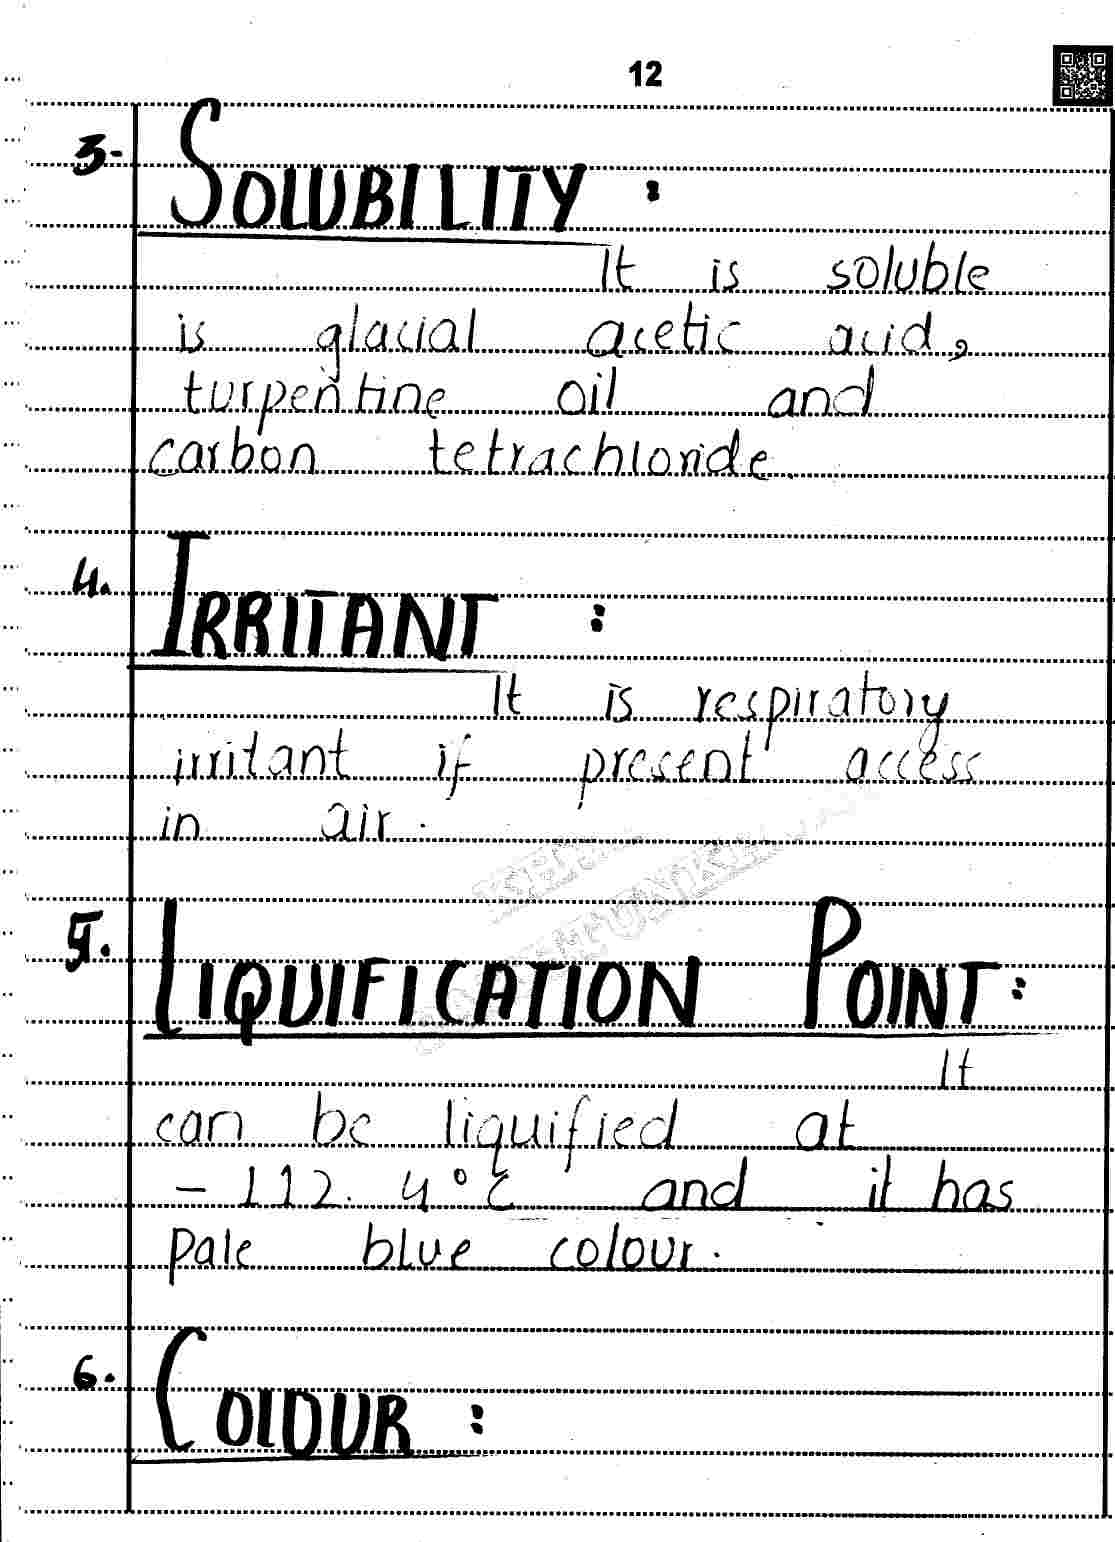 12
3. SOLUBILITY :
It is soluble
is glacial acetic acid,
turpentine oil and
carbon tetrachloride.
4. IRRITANT :
It is respiratory
irritant if present access
in air.
5. LIQUIFICATION POINT:
It
can be liquified at
- 112.4°C and it has
pale blue colour.
6. COLOUR :